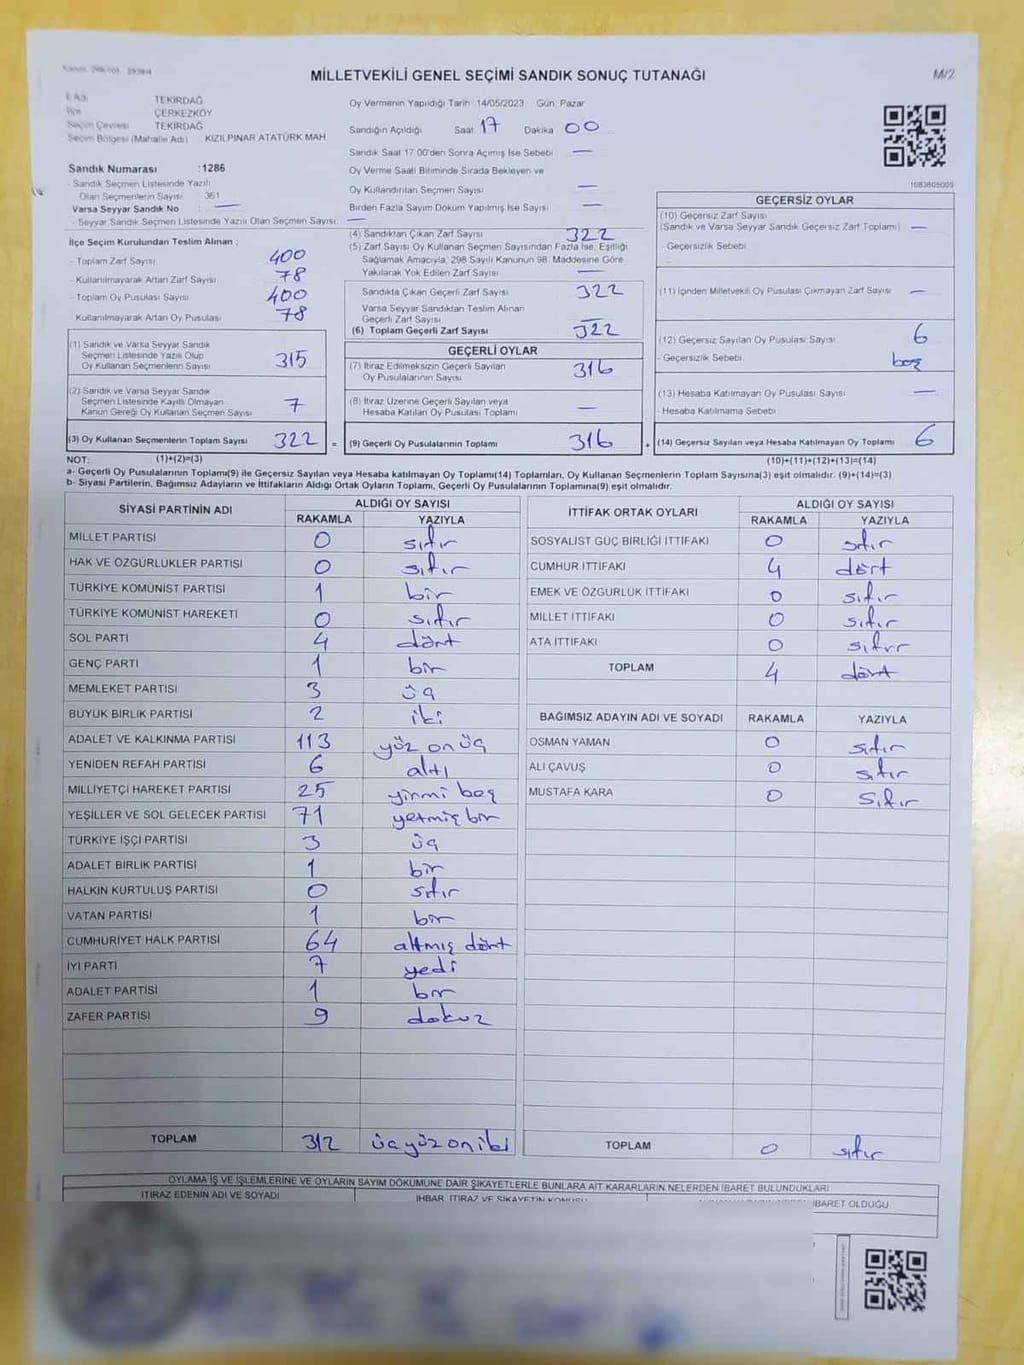 MİLLETVEKİLİ GENEL SEÇİMİ SANDIK SONUÇ TUTANAĞI
M/2
İl Adı TEKİRDAĞ
İlçe ÇERKEZKÖY
Seçim Çevresi TEKİRDAĞ
Seçim Bölgesi (Mahalle Adı) KIZILPINAR ATATÜRK MAH
Sandık Numarası :1286
- Sandık Seçmen Listesinde Yazılı
Olan Seçmenlerin Sayısı 361
Varsa Seyyar Sandık No : —
- Seyyar Sandık Seçmen Listesinde Yazılı Olan Seçmen Sayısı: —
İlçe Seçim Kurulundan Teslim Alınan ;
- Toplam Zarf Sayısı 400
- Kullanılmayarak Artan Zarf Sayısı 78
- Toplam Oy Pusulası Sayısı 400
Kullanılmayarak Artan Oy Pusulası 78
(1) Sandık ve Varsa Seyyar Sandık
Seçmen Listesinde Yazılı Olup
Oy Kullanan Seçmenlerin Sayısı 315
(2) Sandık ve Varsa Seyyar Sandık
Seçmen Listesinde Kayıtlı Olmayan
Kanun Gereği Oy Kullanan Seçmen Sayısı 7
(3) Oy Kullanan Seçmenlerin Toplam Sayısı 322 =
Oy Vermenin Yapıldığı Tarih :14/05/2023 Gün: Pazar
Sandığın Açıldığı Saat 17 Dakika 00
Sandık Saat 17:00'den Sonra Açılmış İse Sebebi —
Oy Verme Saati Bitiminde Sırada Bekleyen ve
Oy Kullandırılan Seçmen Sayısı —
Birden Fazla Sayım Döküm Yapılmış İse Sayısı —
(4) Sandıktan Çıkan Zarf Sayısı 322
(5) Zarf Sayısı Oy Kullanan Seçmen Sayısından Fazla İse, Eşitliği
Sağlamak Amacıyla, 298 Sayılı Kanunun 98. Maddesine Göre
Yakılarak Yok Edilen Zarf Sayısı —
Sandıkta Çıkan Geçerli Zarf Sayısı 322
Varsa Seyyar Sandıktan Teslim Alınan
Geçerli Zarf Sayısı —
(6) Toplam Geçerli Zarf Sayısı 322
GEÇERLİ OYLAR
(7) İtiraz Edilmeksizin Geçerli Sayılan
Oy Pusulalarının Sayısı 316
(8) İtiraz Üzerine Geçerli Sayılan veya
Hesaba Katılan Oy Pusulası Toplamı —
(9) Geçerli Oy Pusulalarının Toplamı 316 +
1083605009
GEÇERSİZ OYLAR
(10) Geçersiz Zarf Sayısı
(Sandık ve Varsa Seyyar Sandık Geçersiz Zarf Toplamı) —
- Geçersizlik Sebebi
(11) İçinden Milletvekili Oy Pusulası Çıkmayan Zarf Sayısı —
(12) Geçersiz Sayılan Oy Pusulası Sayısı 6
- Geçersizlik Sebebi boş
(13) Hesaba Katılmayan Oy Pusulası Sayısı —
- Hesaba Katılmama Sebebi
(14) Geçersiz Sayılan veya Hesaba Katılmayan Oy Toplamı 6
NOT: (1)+(2)=(3) (10)+(11)+(12)+(13)=(14)
a- Geçerli Oy Pusulalarının Toplamı(9) ile Geçersiz Sayılan veya Hesaba katılmayan Oy Toplamı(14) Toplamları, Oy Kullanan Seçmenlerin Toplam Sayısına(3) eşit olmalıdır. (9)+(14)=(3)
b- Siyasi Partilerin, Bağımsız Adayların ve İttifakların Aldığı Ortak Oyların Toplamı, Geçerli Oy Pusulalarının Toplamına(9) eşit olmalıdır.
SİYASİ PARTİNİN ADI ALDIĞI OY SAYISI
RAKAMLA YAZIYLA
MİLLET PARTİSİ 0 sıfır
HAK VE ÖZGÜRLÜKLER PARTİSİ 0 sıfır
TÜRKİYE KOMÜNİST PARTİSİ 1 bir
TÜRKİYE KOMÜNİST HAREKETİ 0 sıfır
SOL PARTİ 4 dört
GENÇ PARTİ 1 bir
MEMLEKET PARTİSİ 3 üç
BÜYÜK BİRLİK PARTİSİ 2 iki
ADALET VE KALKINMA PARTİSİ 113 yüz on üç
YENİDEN REFAH PARTİSİ 6 altı
MİLLİYETÇİ HAREKET PARTİSİ 25 yirmi beş
YEŞİLLER VE SOL GELECEK PARTİSİ 71 yetmiş bir
TÜRKİYE İŞÇİ PARTİSİ 3 üç
ADALET BİRLİK PARTİSİ 1 bir
HALKIN KURTULUŞ PARTİSİ 0 sıfır
VATAN PARTİSİ 1 bir
CUMHURİYET HALK PARTİSİ 64 altmış dört
İYİ PARTİ 7 yedi
ADALET PARTİSİ 1 bir
ZAFER PARTİSİ 9 dokuz
TOPLAM 312 üçyüz oniki
İTTİFAK ORTAK OYLARI ALDIĞI OY SAYISI
RAKAMLA YAZIYLA
SOSYALİST GÜÇ BİRLİĞİ İTTİFAKI 0 sıfır
CUMHUR İTTİFAKI 4 dört
EMEK VE ÖZGÜRLÜK İTTİFAKI 0 sıfır
MİLLET İTTİFAKI 0 sıfır
ATA İTTİFAKI 0 sıfır
TOPLAM 4 dört
BAĞIMSIZ ADAYIN ADI VE SOYADI RAKAMLA YAZIYLA
OSMAN YAMAN 0 sıfır
ALİ ÇAVUŞ 0 sıfır
MUSTAFA KARA 0 sıfır
TOPLAM 0 sıfır
OYLAMA İŞ VE İŞLEMLERİNE VE OYLARIN SAYIM DÖKÜMÜNE DAİR ŞİKAYETLERLE BUNLARA AİT KARARLARIN NELERDEN İBARET BULUNDUKLARI
İTİRAZ EDENİN ADI VE SOYADI İHBAR, İTİRAZ VE ŞİKAYETİN KONUSU İBARET OLDUĞU